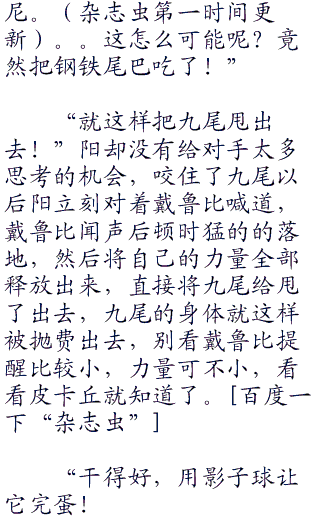 尼。（杂志虫第一时间更
新）。。这怎么可能呢？竟
然把钢铁尾巴吃了！”
“就这样把九尾甩出
去！”阳却没有给对手太多
思考的机会，咬住了九尾以
后阳立刻对着戴鲁比喊道，
戴鲁比闻声后顷时猛的的落
地，然后将自己的力量全部
释放出来，直接将九尾给甩
了出去，九尾的身体就这样
被抛费出去，别看戴鲁比提
醒比较小，力量可不小，看
看皮卡丘就知道了。[百度一
下“杂志虫”]
“干得好，用影子球让
它完蛋！